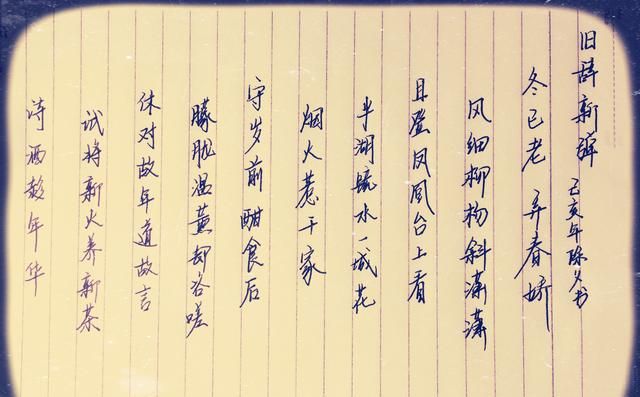 旧辞新 己亥年除夕书
冬已老 弄春娇
风细柳杨斜潇潇
且登凤凰台上看
半湖毓水一城花
烟火惹千家
守岁前 酣食后
朦胧温薰却咨嗟
休对故年道故言
试将新火养新茶
诗酒趁年华